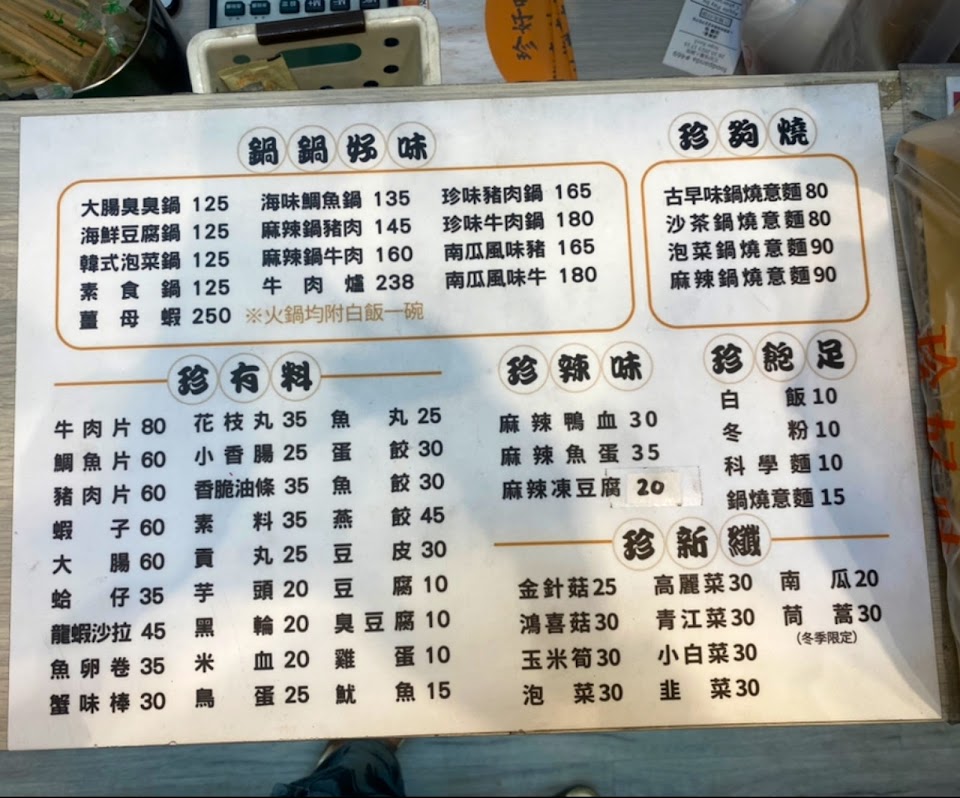 珍好味
鍋鍋好味
大腸臭臭鍋 125
海鮮豆腐鍋 125
韓式泡菜鍋 125
素食鍋 125
薑母蝦 250
海味鯛魚鍋 135
麻辣鍋豬肉 145
麻辣鍋牛肉 160
牛肉爐 238
※火鍋均附白飯一碗
珍味豬肉鍋 165
珍味牛肉鍋 180
南瓜風味豬 165
南瓜風味牛 180
珍夠燒
古早味鍋燒意麵 80
沙茶鍋燒意麵 80
泡菜鍋燒意麵 90
麻辣鍋燒意麵 90
珍有料
牛肉片 80
鯛魚片 60
豬肉片 60
蝦子 60
大腸 60
蛤仔 35
龍蝦沙拉 45
魚卵卷 35
蟹味棒 30
花枝丸 35
小香腸 25
香脆油條 35
素料 35
貢丸 25
芋頭 20
黑輪 20
米血 20
鳥蛋 25
魚丸 25
蛋餃 30
魚餃 30
燕餃 45
豆皮 30
豆腐 10
臭豆腐 10
雞蛋 10
魷魚 15
珍辣味
麻辣鴨血 30
麻辣魚蛋 35
麻辣凍豆腐 20
珍飽足
白飯 10
冬粉 10
科學麵 10
鍋燒意麵 15
珍新纖
金針菇 25
鴻喜菇 30
玉米筍 30
泡菜 30
高麗菜 30
青江菜 30
小白菜 30
韭菜 30
南瓜 20
茼蒿 30
(冬季限定)